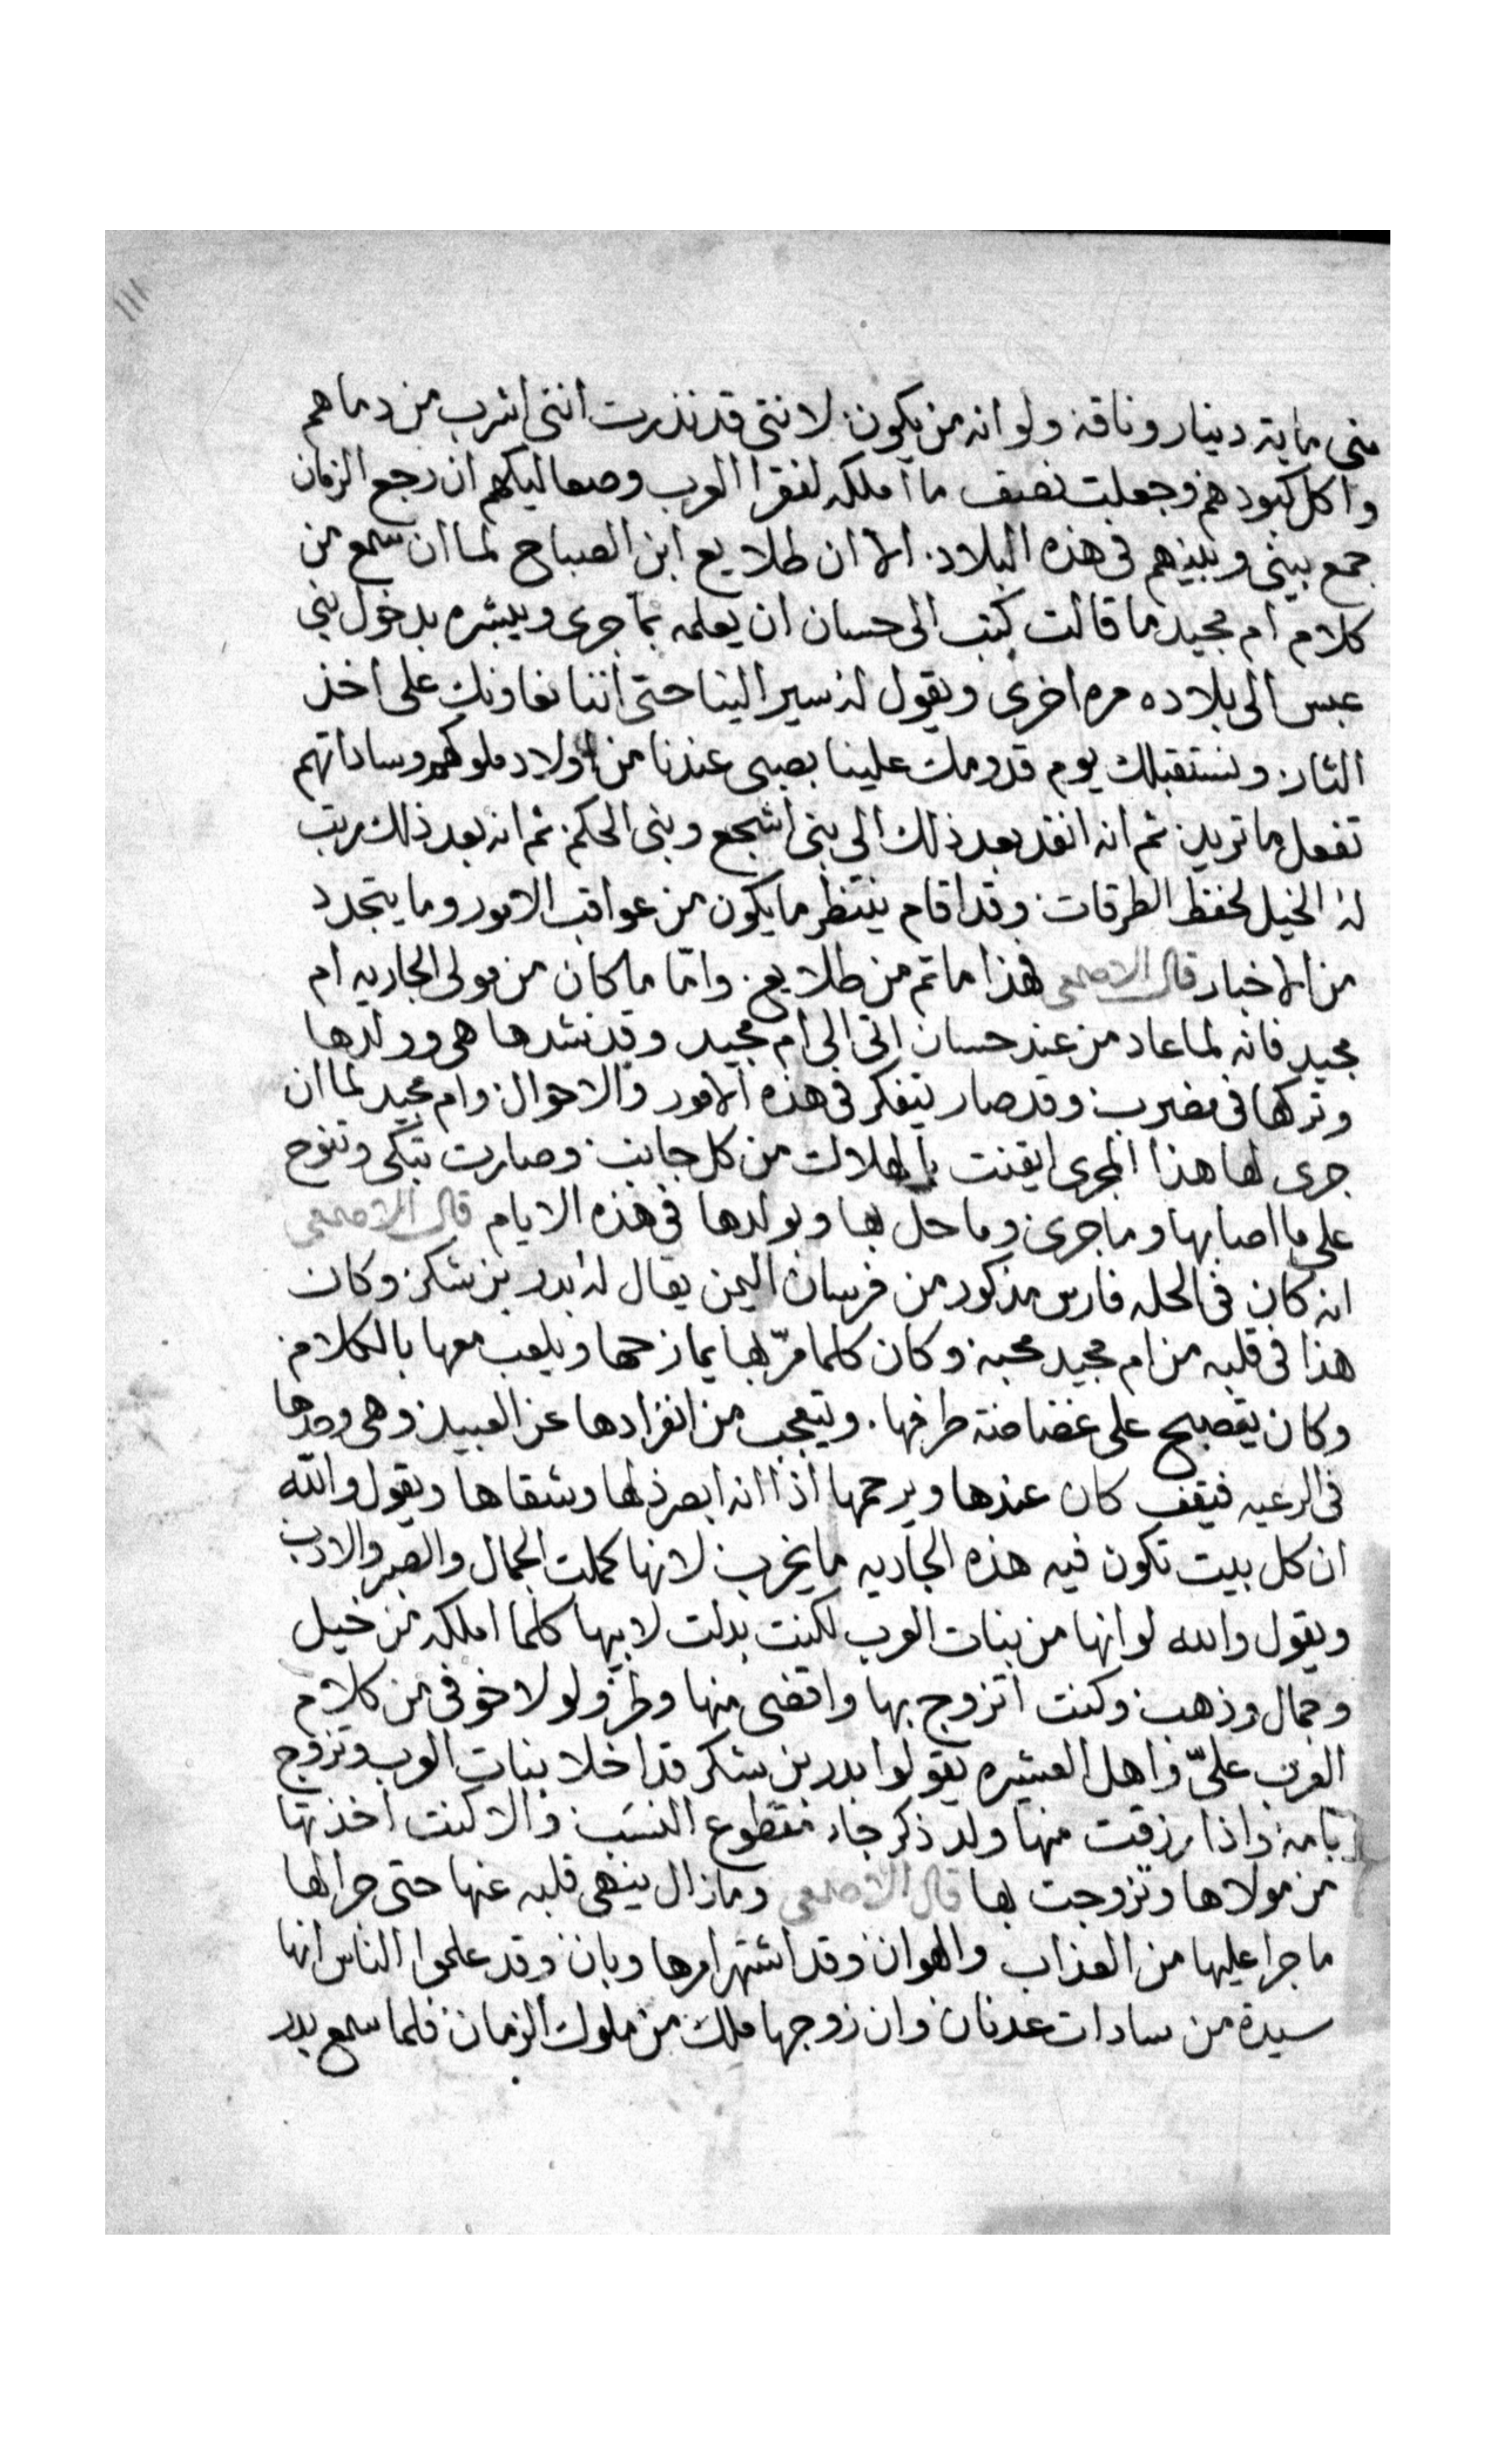 ١١١
منى ماية دينار وناقه ولو انه من يكون لاننى قد نذرت اننى اشرب من دماهم
واكل كبودهم وجعلت نصف ما املكه لفقرا العرب وصعاليكهم ان رجع الزمان
جمع بينى وبينهم فى هذه البلاد الا ان طلايع ابن الصباح لما ان سمع من
كلام ام مجيد ما قالت كتب الى حسان ان يعلمه بما جرى ويبشره بدخول بنى
عبس الى بلاده مره اخرى ويقول له سير الينا حتى اننا نعاونك على اخذ
الثار ونستقبلك يوم قدومك علينا بصبى عندنا من اولاد ملوكهم وساداتهم
تفعل ما تريد ثم انه انفد بعد ذلك الى بنى اشجع وبنى الحكم ثم انه بعد ذلك رتب
له الخيل لحفظ الطرقات وقد اقام ينتظر ما يكون من عواقب الامور وما يتجدد
من الاخبار قال الاصمعى فهذا ما تم من طلايع واما ما كان من مولى الجاريه ام
مجيد فانه لما عاد من عند حسان اتى الى ام مجيد وقد شدها هى وولدها
وتركها فى مضرب وقد صار يتفكر فى هذه الامور والاحوال وام مجيد لما ان
جرى لها هذا المجرى ايقنت بالهلاك من كل جانب وصارت تبكى وتنوح
على ما اصابها وما جرى وما حل بها وبولدها فى هذه الايام قال الاصمعى
انه كان فى الحله فارس مذكور من فرسان اليمن يقال له بدر بن شكر وكان
هذا فى قلبه من ام مجيد محبه وكان كلما مرّ بها يمازحها ويلعب معها بالكلام
وكان يصبح على غضاضة طرفها ويتعجب من انفرادها عن العبيد وهى وحدها
فى الرعيه فيقف كان عندها ويرحمها اذا انه ابصر ذلها وشقاها ويقول والله
ان كل بيت تكون فيه هذه الجاريه ما يخرب لانها كملت الجمال والصبر والادب
ويقول والله لو انها من بنات العرب لكنت بدلت لابيها كلما املكه من خيل
وجمال وذهب وكنت اتزوج بها واقضى منها وطر ولولا خوفى من كلام
العرب علىّ واهل العشيره يقولوا بدر بن شكر قد اخلا بنات العرب وتزوج
بامه واذا رزقت منها ولد ذكر جاء مقطوع النسَب والا كنت اخذتها
من مولاها وتزوجت بها قال الاصمعى وما زال ينهى قلبه عنها حتى جرا لها
ما جرا عليها من العذاب والهوان وقد اشتهر امرها وبان وقد علموا الناس انها
سيدة من سادات عدنان وان زوجها ملك من ملوك الزمان فلما سمع بدر